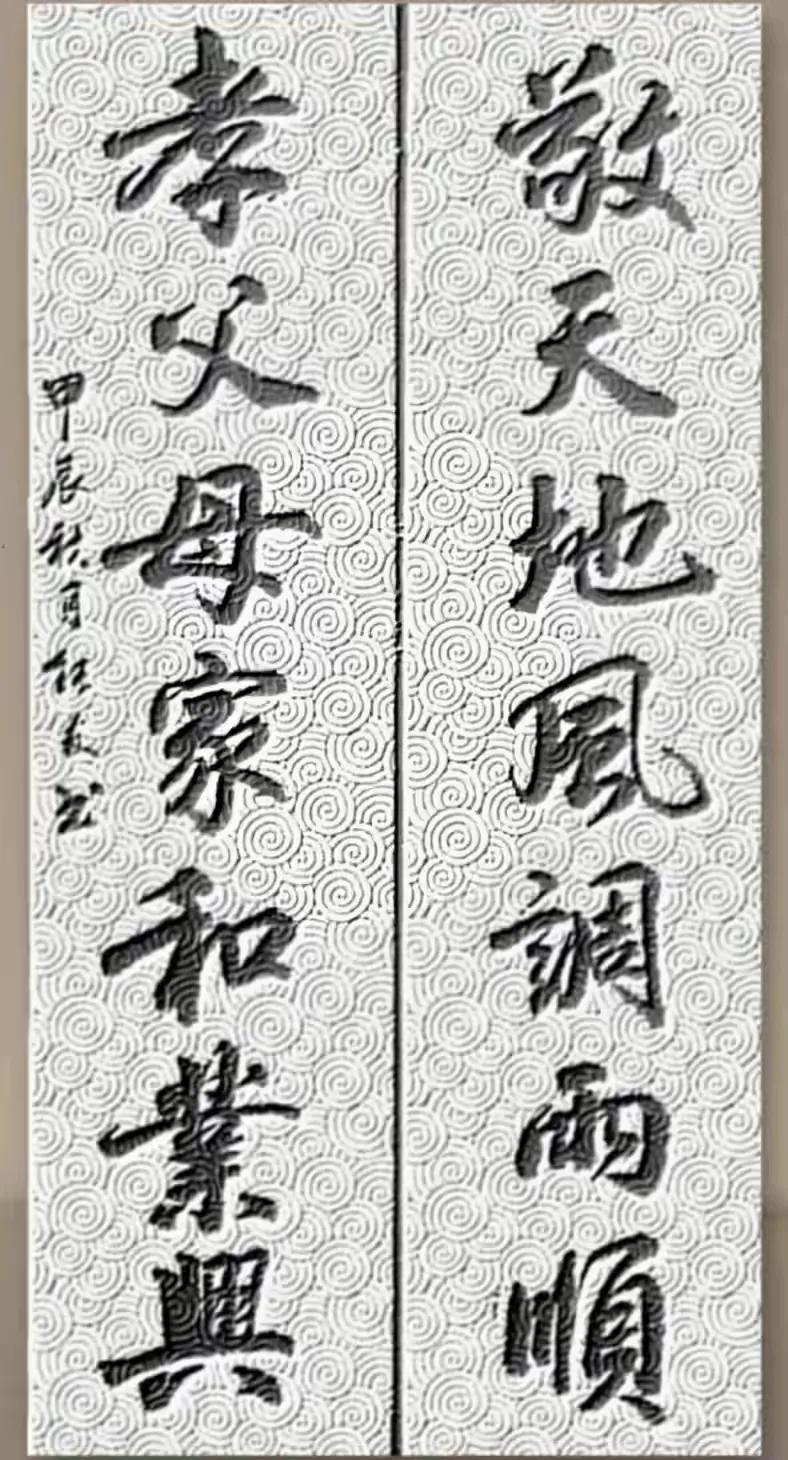 敬天地風調雨順
孝父母家和業興
甲辰秋月任友书